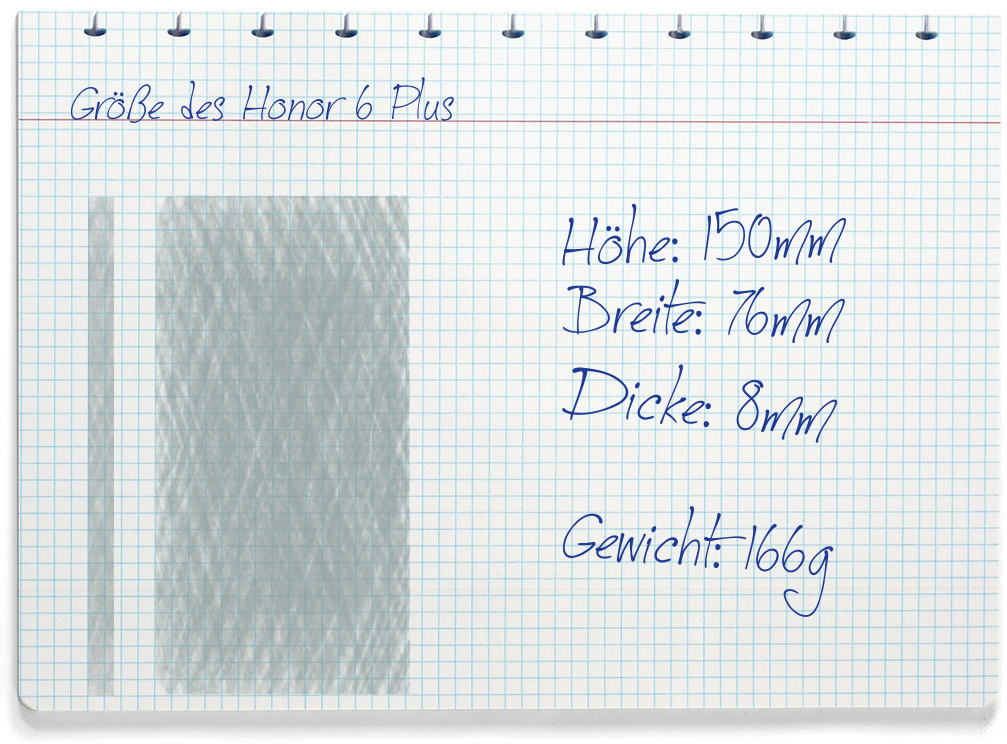 Größe des Honor 6 Plus
Höhe: 150mm
Breite: 76mm
Dicke: 8mm
Gewicht: 166g